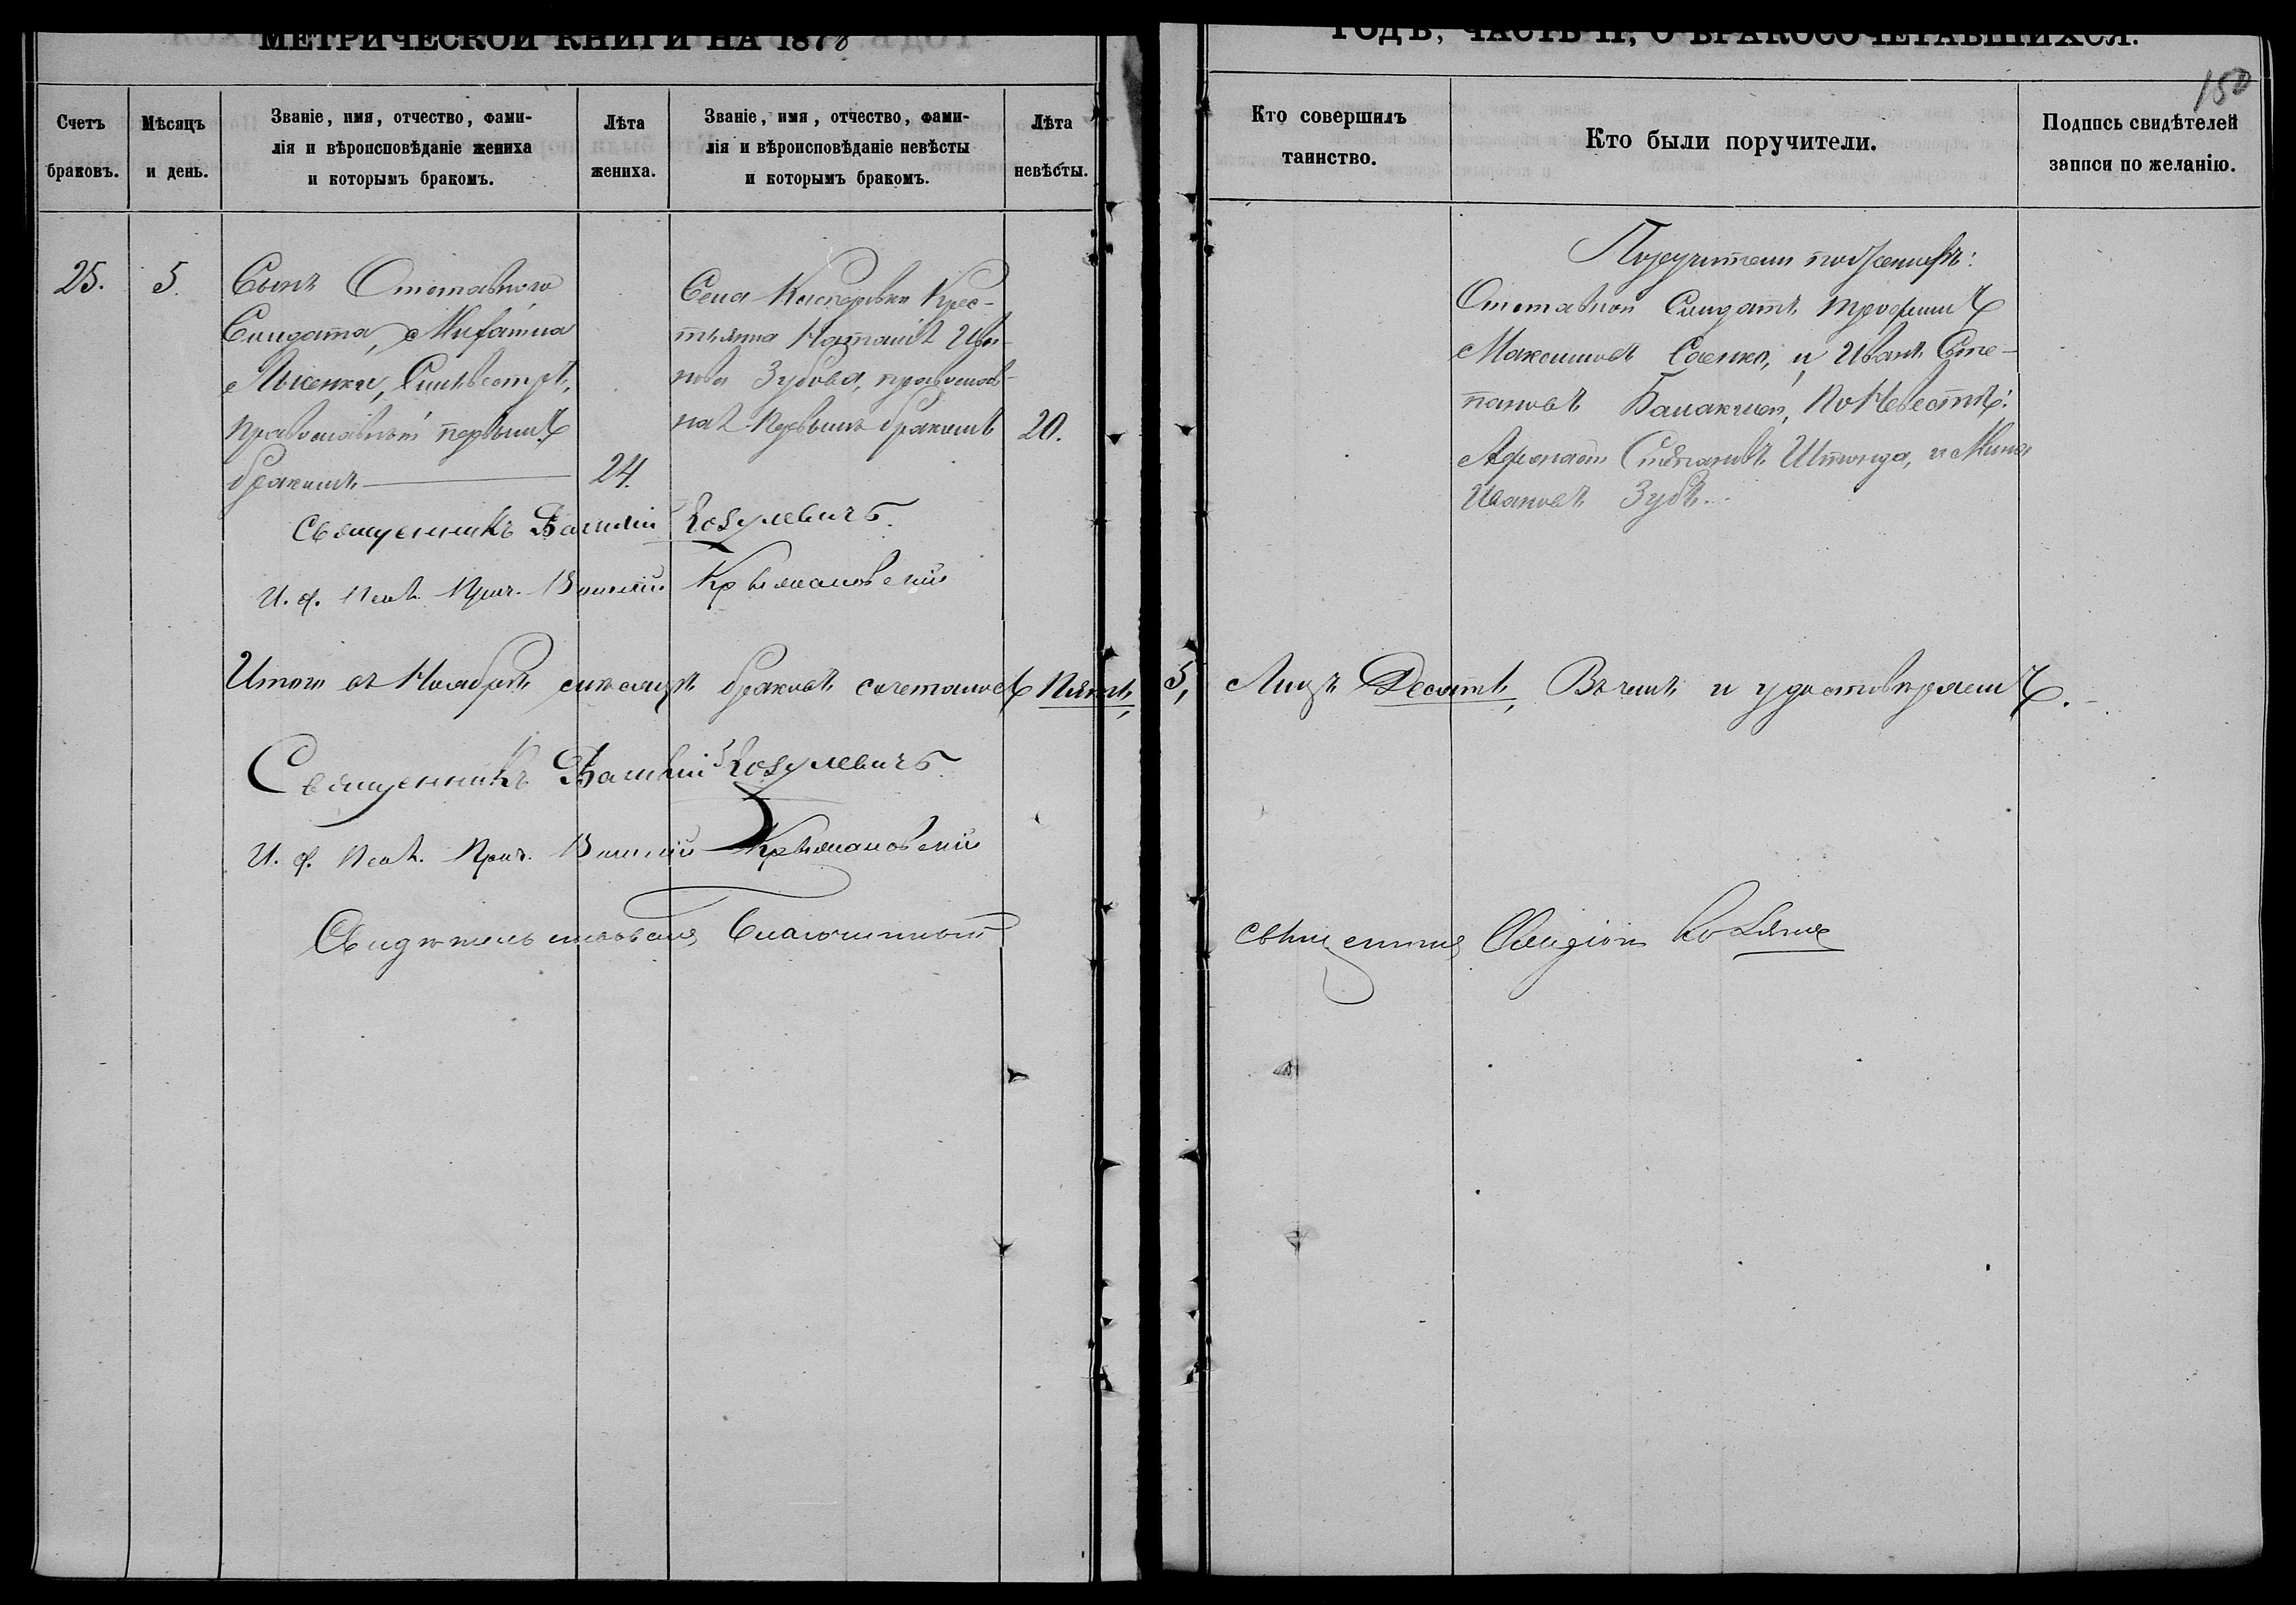 МЕТРИЧЕСКОЙ КНИГИ НА 1878
ГОДЪ, ЧАСТЬ II, О БРАКОСОЧЕТАВШИХСЯ.
150
Счетъ браковъ.
Мѣсяцъ и день.
Званіе, имя, отчество, фами-
лія и вѣроисповѣданіе жениха
и которымъ бракомъ.
Лѣта жениха.
Званіе, имя, отчество, фами-
лія и вѣроисповѣданіе невѣсты
и которымъ бракомъ.
Лѣта невѣсты.
Кто совершилъ
таинство.
Кто были поручители.
Подпись свидѣтелей
записи по желанію.
25.
5.
Сынъ Отставного
Солдата, Михаила
Лысенка, Сильвестръ,
православный первымъ
бракомъ
24.
Села Касперовки Крес-
тьянка Наталія Ива-
нова Зубова, православ-
ная первымъ бракомъ
20.
Поручители по Женихѣ:
Отставной Солдатъ Трофимъ
Максимовъ Саенко, и Иванъ Сте-
пановъ Балакчей, По Невестѣ:
Степановъ и
Ивановъ Зубъ.
Священникъ Василій Козулевичъ.
И. д. Псал. Прич. Василій
Итого въ Ноябрѣ мѣсяцѣ браковъ сочеталось Пять, 5, Лицъ Десять, Въ чемъ и удостовѣряемъ.
Священникъ Василій Козулевичъ
И. д. Псал. Прич. Василій
Свидѣтельствовалъ Благочинный
священникъ